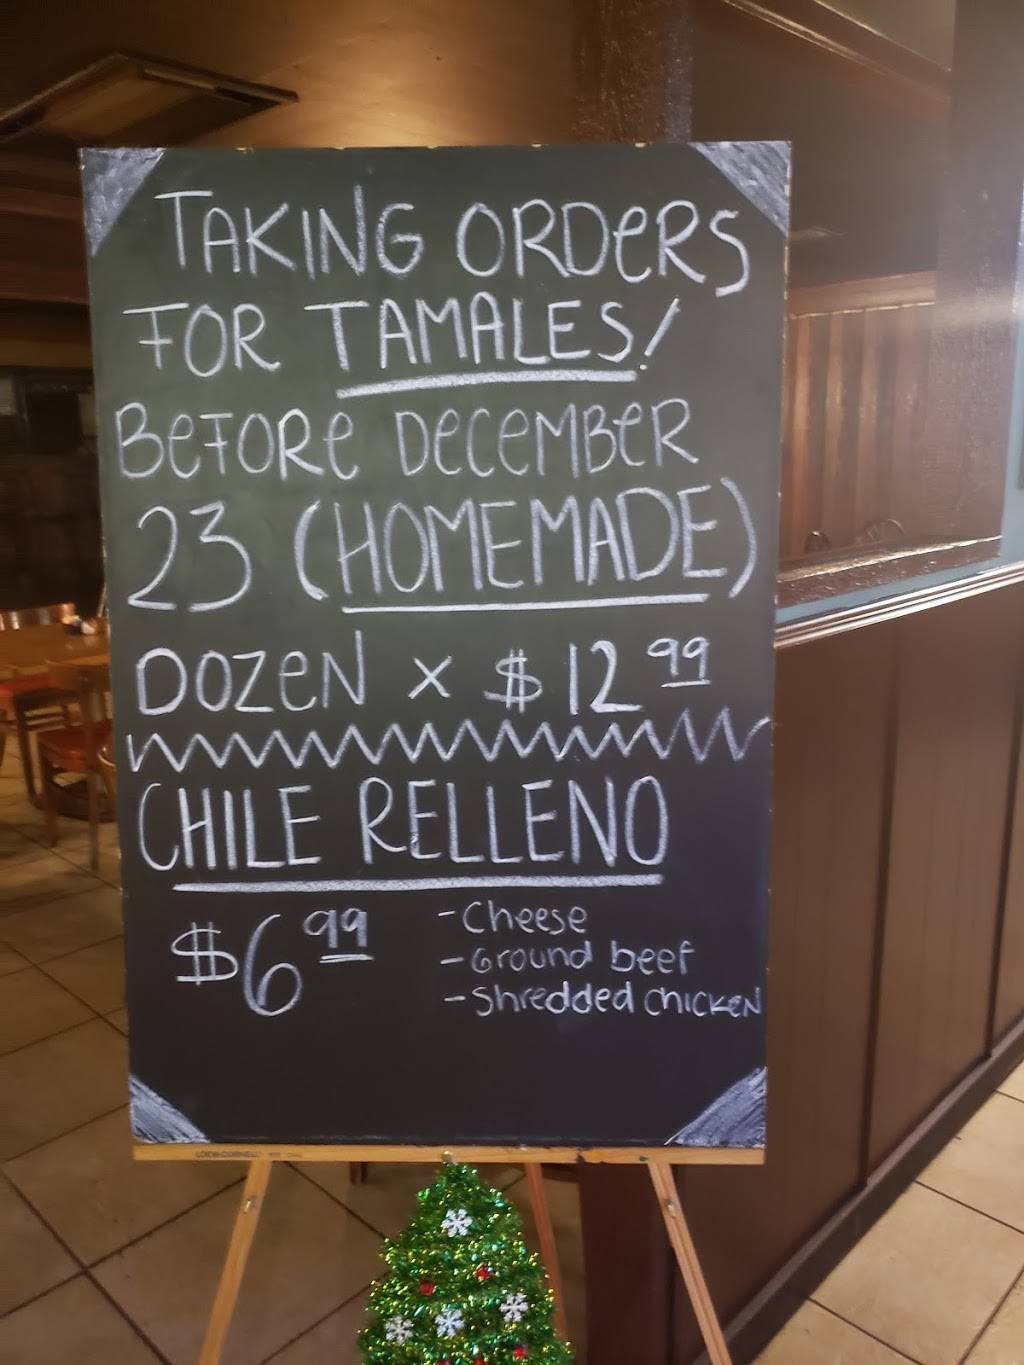 TAKING ORDERS
FOR TAMALES!
BEFORE DECEMBER
23 (HOMEMADE)
DOZEN x $12 99
CHILE RELLENO
$6 99
- Cheese
- Ground beef
- Shredded chicken